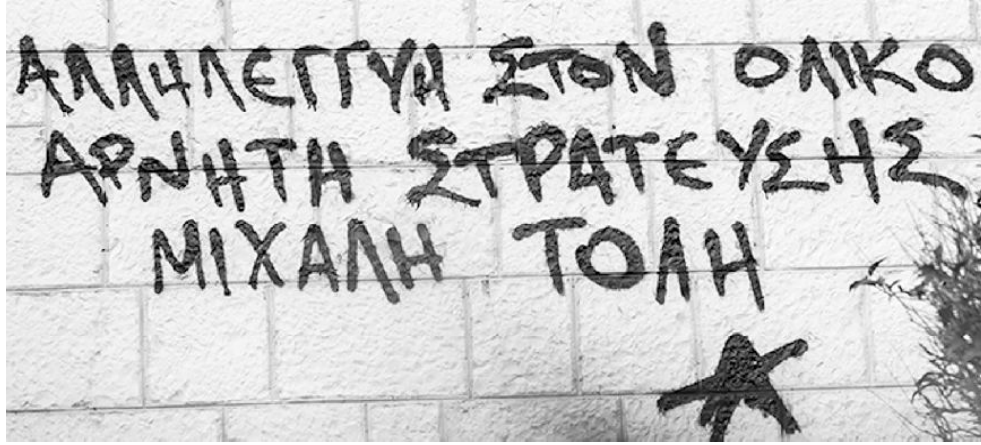 ΑΛΛΗΛΕΓΓΥΗ ΣΤΟΝ ΟΛΙΚΟ
ΑΡΝΗΤΗ ΣΤΡΑΤΕΥΣΗΣ
ΜΙΧΑΛΗ ΤΟΛΗ